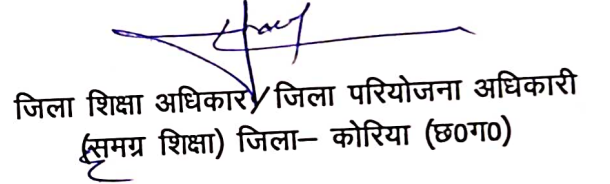 जिला शिक्षा अधिकारी/जिला परियोजना अधिकारी
(समग्र शिक्षा) जिला– कोरिया (छ0ग0)